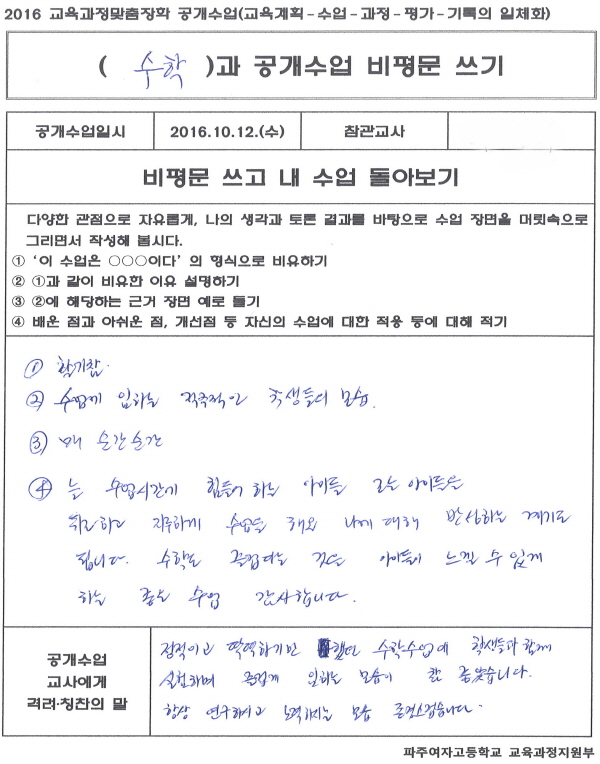 2016 교육과정맞춤장학 공개수업(교육계획-수업-과정-평가-기록의 일체화)
( 수학 )과 공개수업 비평문 쓰기
공개수업일시 2016.10.12.(수) 참관교사
비평문 쓰고 내 수업 돌아보기
다양한 관점으로 자유롭게, 나의 생각과 토론 결과를 바탕으로 수업 장면을 머릿속으로
그리면서 작성해 봅시다.
① '이 수업은 ○○○이다' 의 형식으로 비유하기
② ①과 같이 비유한 이유 설명하기
③ ②에 해당하는 근거 장면 예로 들기
④ 배운 점과 아쉬운 점, 개선점 등 자신의 수업에 대한 적용 등에 대해 적기
① 활기참.
② 수업에 임하는 적극적인 학생들의 모습.
③ 매 순간순간
④ 늘 수업시간에 힘들어 하는 아이들 모든 아이들을
하고 지루하게 수업을 해온 나에 대해 반성하는 계기도
됩니다. 수학도 즐겁다는 것을 아이들이 느낄 수 있게
하는 좋은 수업 감사합니다.
공개수업
교사에게
격려·칭찬의 말
정적이고 딱딱하기만 했던 수학수업에 학생들과 함께
실험하며 즐겁게 임하는 모습이 참 좋았습니다.
항상 연구하시고 노력하시는 모습 존경스럽습니다.
파주여자고등학교 교육과정지원부